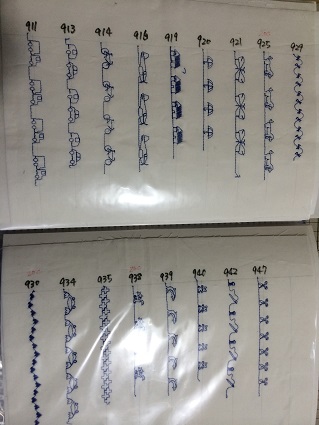 911
913
914
916
919
920
921
925
929
930
934
935
938
939
940
942
947